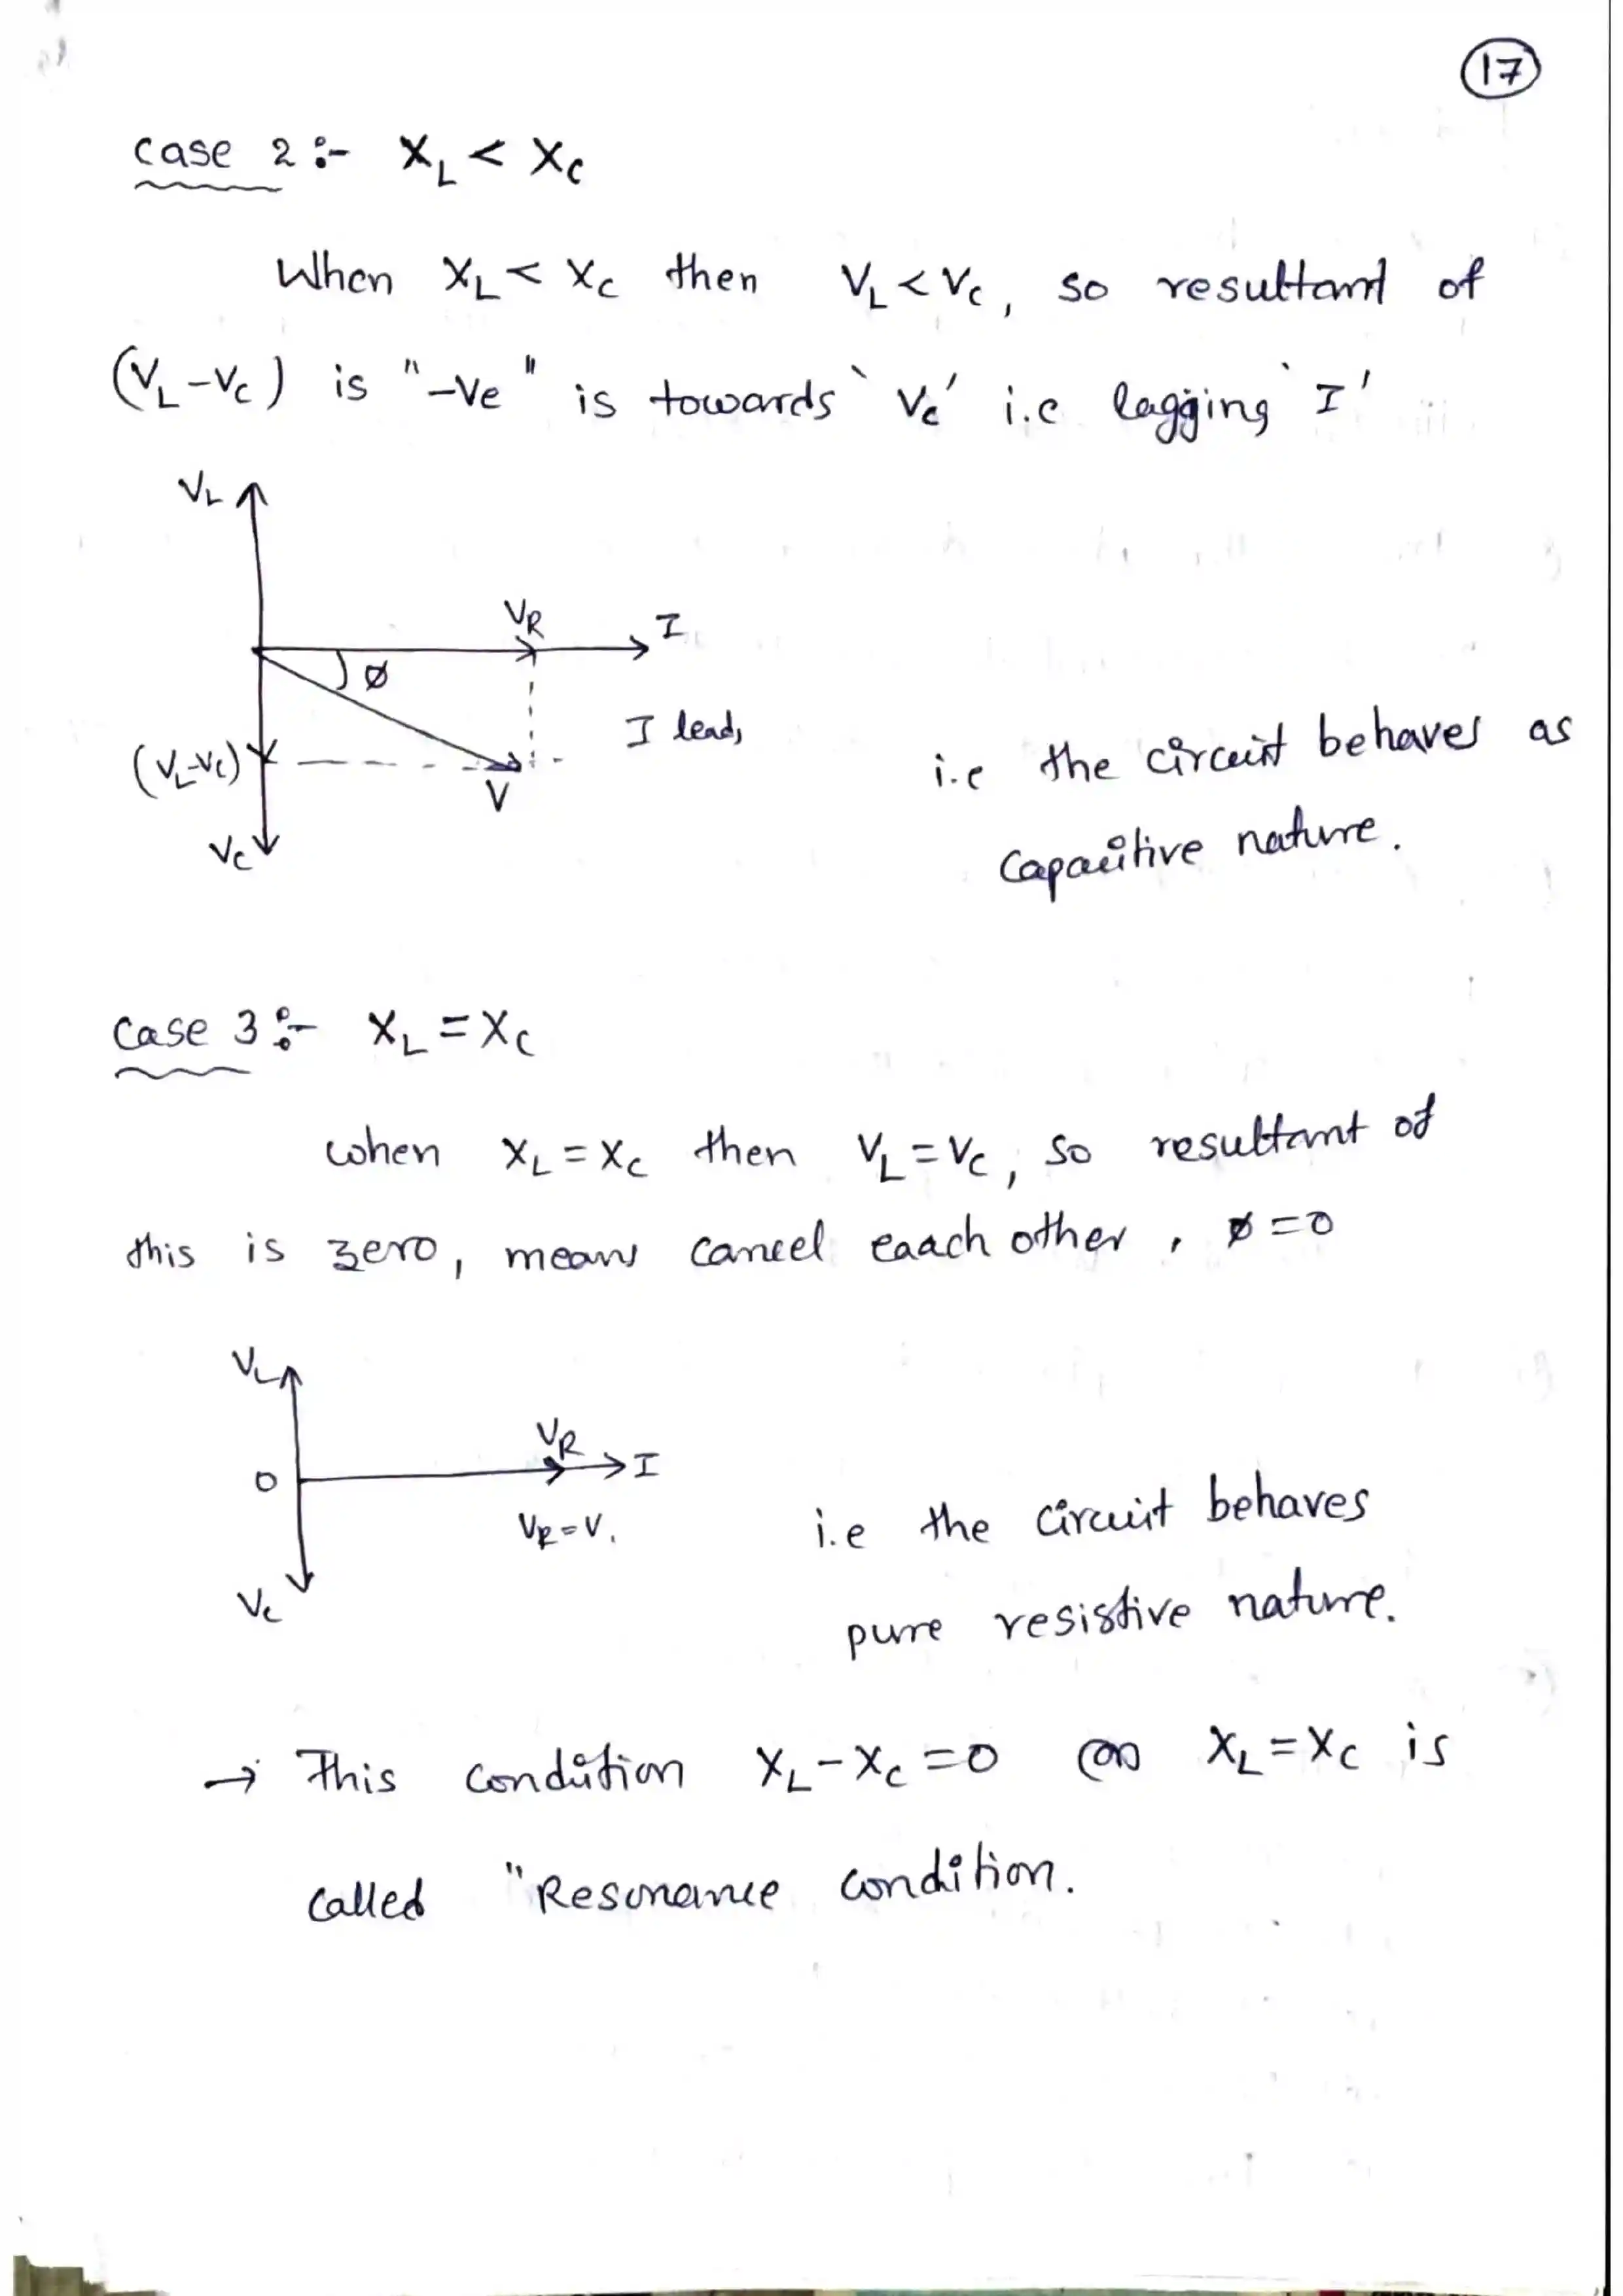 17
Case 2 :- X_L < X_C
When X_L < X_C then V_L < V_C, so resultant of
(V_L - V_C) is "-Ve" is towards `V_C' i.e lagging `I'
V_L
V_R
I
Ø
I leads
(V_L-V_C)
V
V_C
i.e the circuit behaves as
Capacitive nature.
Case 3 :- X_L = X_C
when X_L = X_C then V_L = V_C, so resultant of
this is zero, means cancel eaach other, Ø = 0
V_L
V_R
I
O
V_R = V.
V_C
i.e the circuit behaves
pure resistive nature.
→ This condition X_L - X_C = 0 (or) X_L = X_C is
called "Resonance condition.